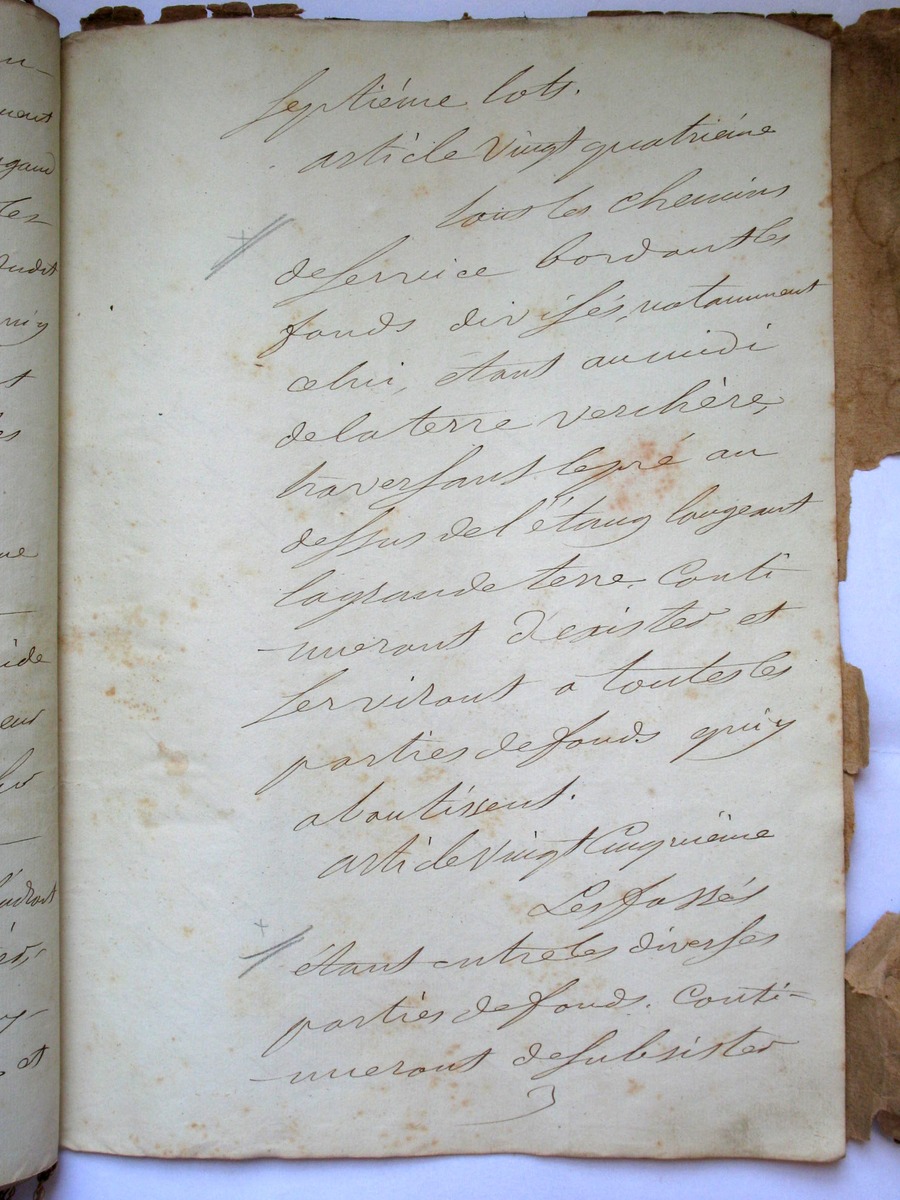 n-
ment
gand
les
dudit
t
es
ue
ide
eur
et
Septiéme lots.
article vingt quatriéme
tous les chemins
de service bordant les
fonds divisés, notamment
celui, étant au midi
de la terre verchère,
traversant le pré au
dessus de l'étang longeant
la grande terre. Conti
-nueront d'exister et
serviront a toutes les
parties de fonds qui y
aboutissent.
article vingt Cinquiéme
Les fossés
étant entre les diverses
parties de fonds. Conti-
-nueront de subsister